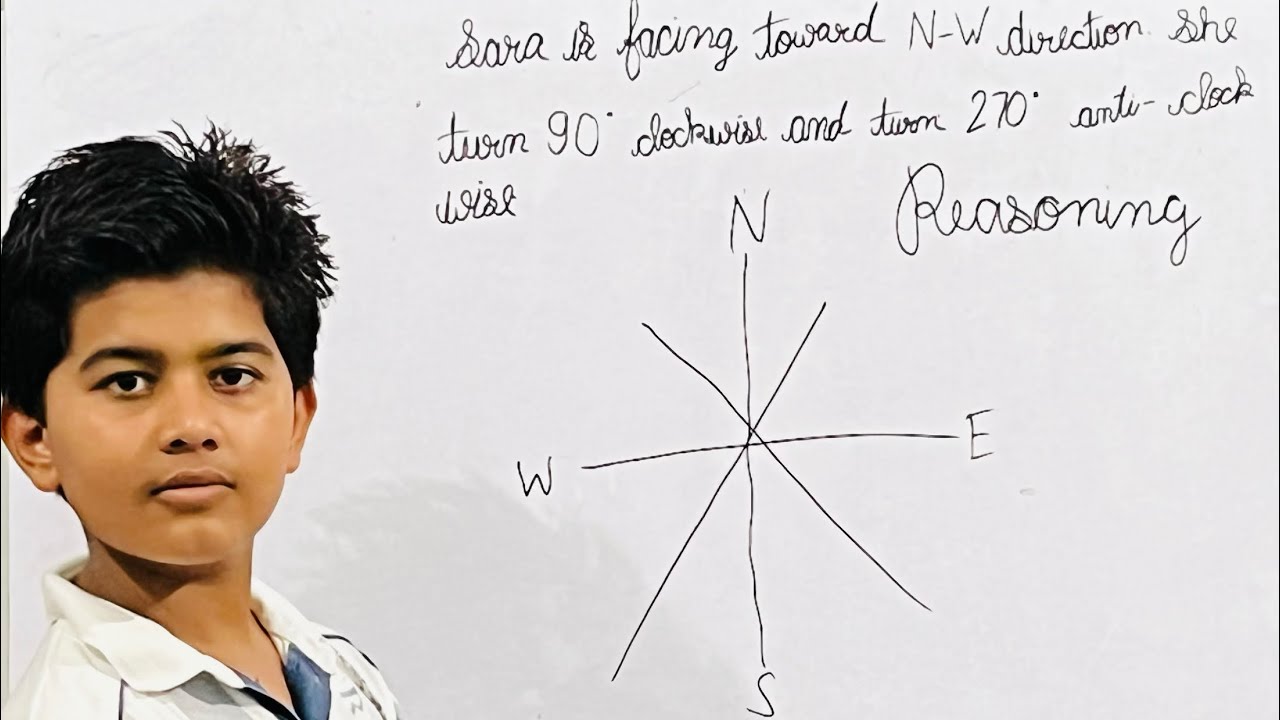 Sara is facing toward N-W direction. She
turn 90° clockwise and turn 270° anti-clock
wise
Reasoning
N
E
W
S